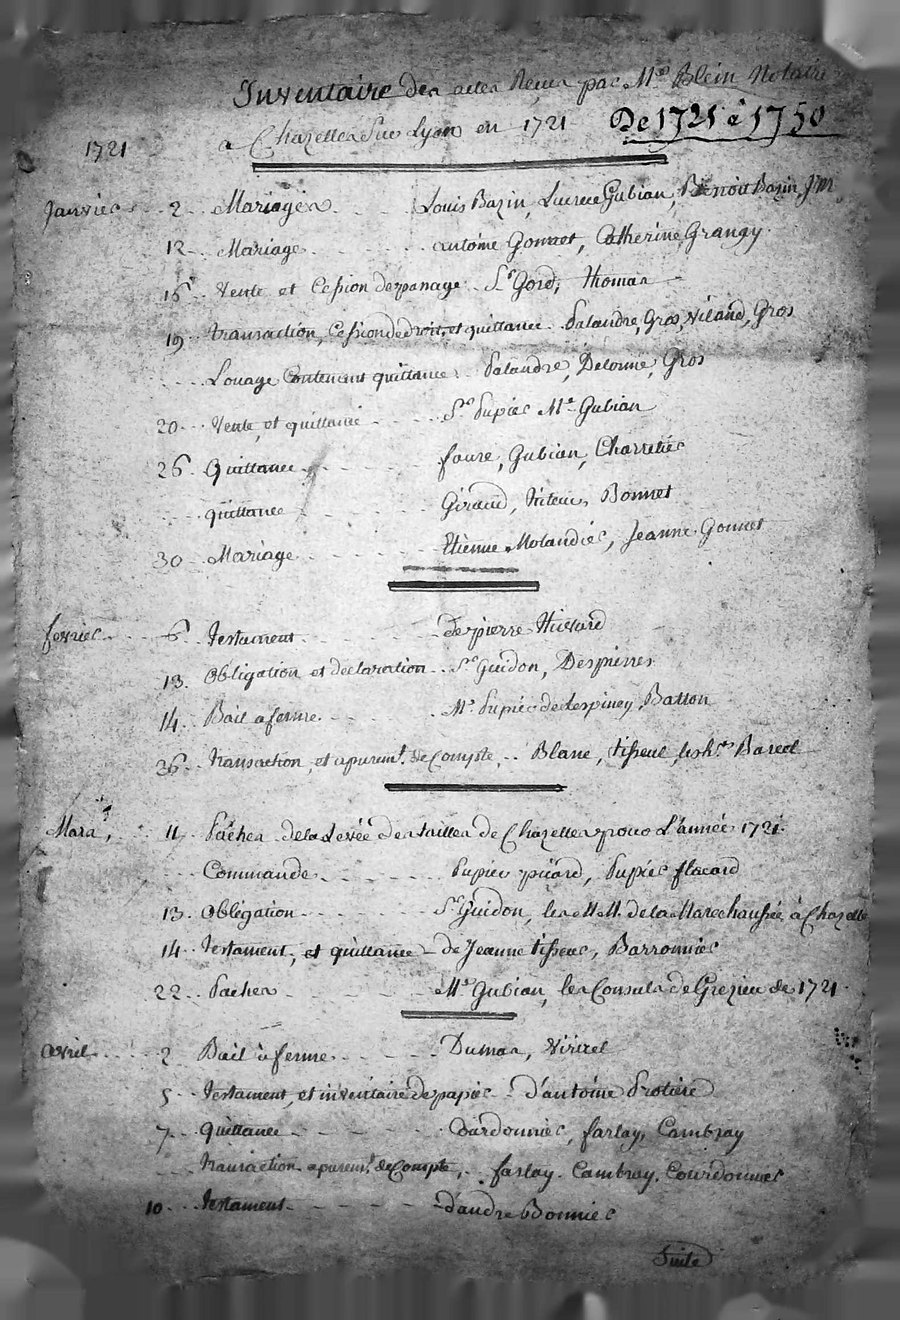 Inventaire des actes Reçus par Me Blein Notaire
a Chazelles sur Lyon en 1721 De 1721 à 1750
1721
Janvier 2 Mariages Louis Bazin, Lucrece Gubian, Benoit Bazin
12 Mariage antoine Gonnet, Catherine Grangy
16 Vente et Cession de panage Sr Gord, Thomas
19 transaction, Cession de droit, et quittance Palandre, Gros, Viland, Gros
Louage Contenant quittance Palandre, Delorme, Gros
20 Vente, et quittance Sr Pupier Me Gubian
26 Quittance faure, Gubian, Charretier
quittance Giraud, Bonnet
30 Mariage Etienne Molandier, Jeanne Gonnet
fevrier 6 Testament de pierre
13 Obligation et declaration Sr Guidon, Despierres
14 Bail a ferme Me Pupier de Lespiney, Batton
transaction, et apuremt de Compte Blanc, tisseur,
Mars 11 Paches de la Levée des tailles de Chazelles pour L'année 1721
Commande Pupier picard, Pupier flacard
13 Obligation Sr Guidon, les MM. de la Marechaussée à Chazelle
14 testament, et quittance de Jeanne tisseur, Barronnier
22 Paches Me Gubian, les Consuls de Grezieu de 1721
avril 2 Bail à ferme Dumas,
5 testament, et inventaire de papier d'antoine Protiere
7 quittance farlay, Cambray
transaction apuremt de Compte farlay, Cambray,
10 testament d'andre Bonnier
Suite